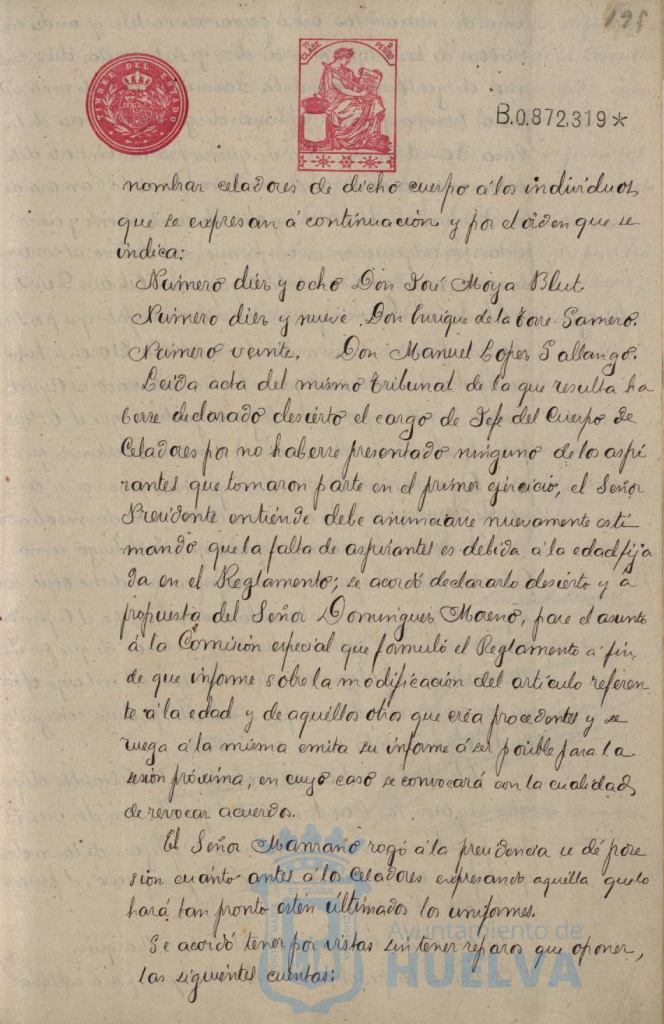 195
TIMBRE DEL ESTADO
7ª CLASE
PESETAS
B.0.872.319*
nombrar celadores de dicho cuerpo á los individuos
que se expresan á continuación y por el orden que se
indica:
Número diez y ocho Don José Moya Blut
Número diez y nueve. Don Enrique de la Torre Gamero.
Número veinte. Don Manuel Lopez Gallango.
Leida acta del mismo tribunal de la que resulta ha
berse declarado desierto el cargo de Jefe del Cuerpo de
Celadores por no haberse presentado ninguno de los aspi
rantes que tomaron parte en el primer ejercicio, el Señor
Presidente entiende debe anunciarse nuevamente esti
mando, que la falta de aspirantes es debida á la edad fija
da en el Reglamento; se acordó declararlo desierto y á
propuesta del Señor Dominguez Moreno, pase el asunto
á la Comisión especial que formuló el Reglamento a fin
de que informe sobre la modificación del articulo referen
te á la edad y de aquellos otros que crea procedentes y se
ruega á la misma emita su informe á ser posible para la
sesión próxima, en cuyo caso se convocará con la cualidad
de revocar acuerdo.
El Señor Manzano rogó á la presidencia se dé pose
sión cuánto antes á los Celadores expresando aquella que lo
hará tan pronto esten últimados los uniformes.
Se acordó tener por vistas sin tener reparos que oponer,
las siguientes cuentas:
Ayuntamiento de
HUELVA